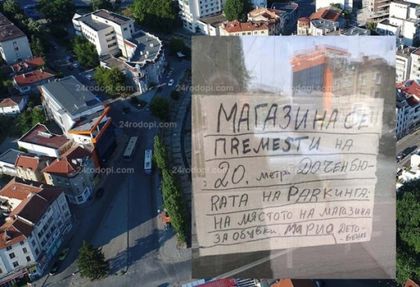 24rodopi.com
24rodopi.com
24rodopi.com
24rodopi.com
МАГАЗИНА СЕ
ПREМЕSТИ НА
20. метра ДО ЧЕНБЮ-
RATA НА PARKИНГА
НА МЯСТОТО НА МАГАЗИНА
ЗА ОБУВКИ МАРИО ДЕТО
БЕШЕ